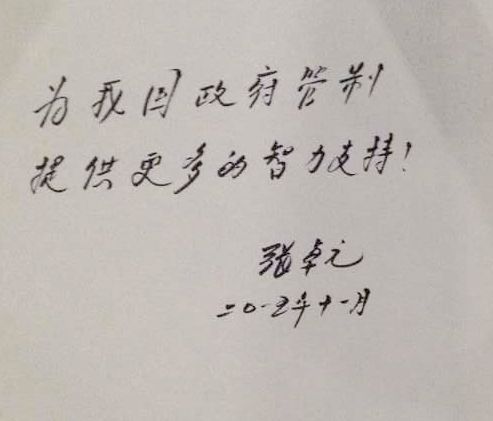 为我国政府管制
提供更多的智力支持!
张卓元
二〇一五年十一月